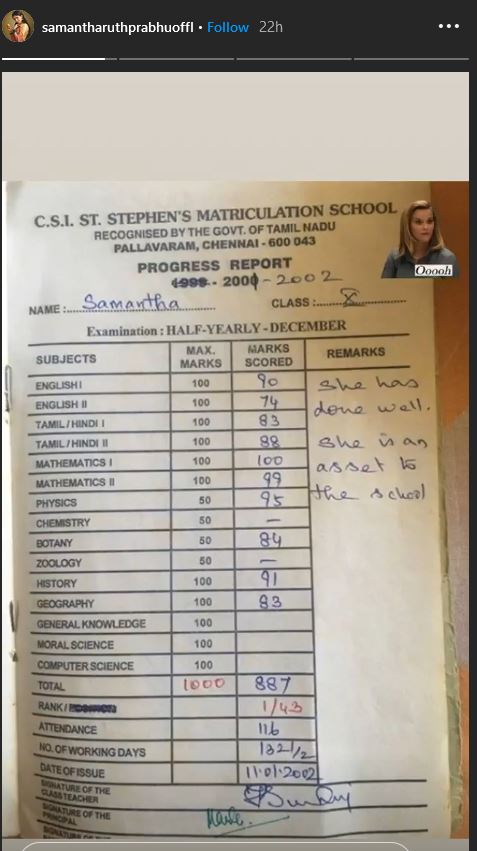 samantharuthprabhuoffl • Follow 22h
C.S.I. ST. STEPHEN'S MATRICULATION SCHOOL
RECOGNISED BY THE GOVT. OF TAMIL NADU
PALLAVARAM, CHENNAI - 600 043
Ooooh
PROGRESS REPORT
1999 - 2001 - 2002
NAME : Samantha CLASS : X
Examination : HALF-YEARLY - DECEMBER
SUBJECTS MAX. MARKS MARKS SCORED REMARKS
ENGLISH I 100 90 She has
ENGLISH II 100 74 done well.
TAMIL / HINDI I 100 83
TAMIL / HINDI II 100 88 She is an
MATHEMATICS I 100 100 asset to
MATHEMATICS II 100 99 the school
PHYSICS 50 95
CHEMISTRY 50 —
BOTANY 50 84
ZOOLOGY 50 —
HISTORY 100 91
GEOGRAPHY 100 83
GENERAL KNOWLEDGE 100
MORAL SCIENCE 100
COMPUTER SCIENCE 100
TOTAL 1000 887
RANK / POSITION 1/43
ATTENDANCE 116
NO. OF WORKING DAYS 132 1/2
DATE OF ISSUE 11.01.2002
SIGNATURE OF THE
CLASS TEACHER
SIGNATURE OF THE
PRINCIPAL
SIGNATURE OF THE